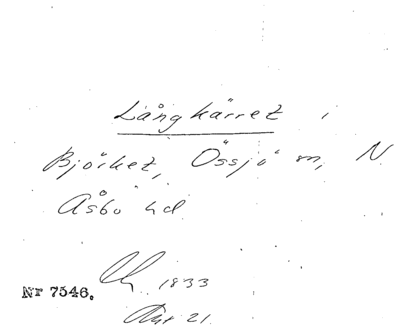 Långkärret i
Björket, Össjö sn, N.
Åsbo hd
1833
Nr 7546.
Akt 21.